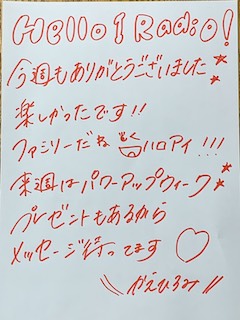 Hello! Radio!
今週もありがとうございました
楽しかったです!!
ファミリーだね ハロアイ!!!
来週はパワーアップウィーク
プレゼントもあるから
メッセージ待ってます♡
\\かえひろみ//